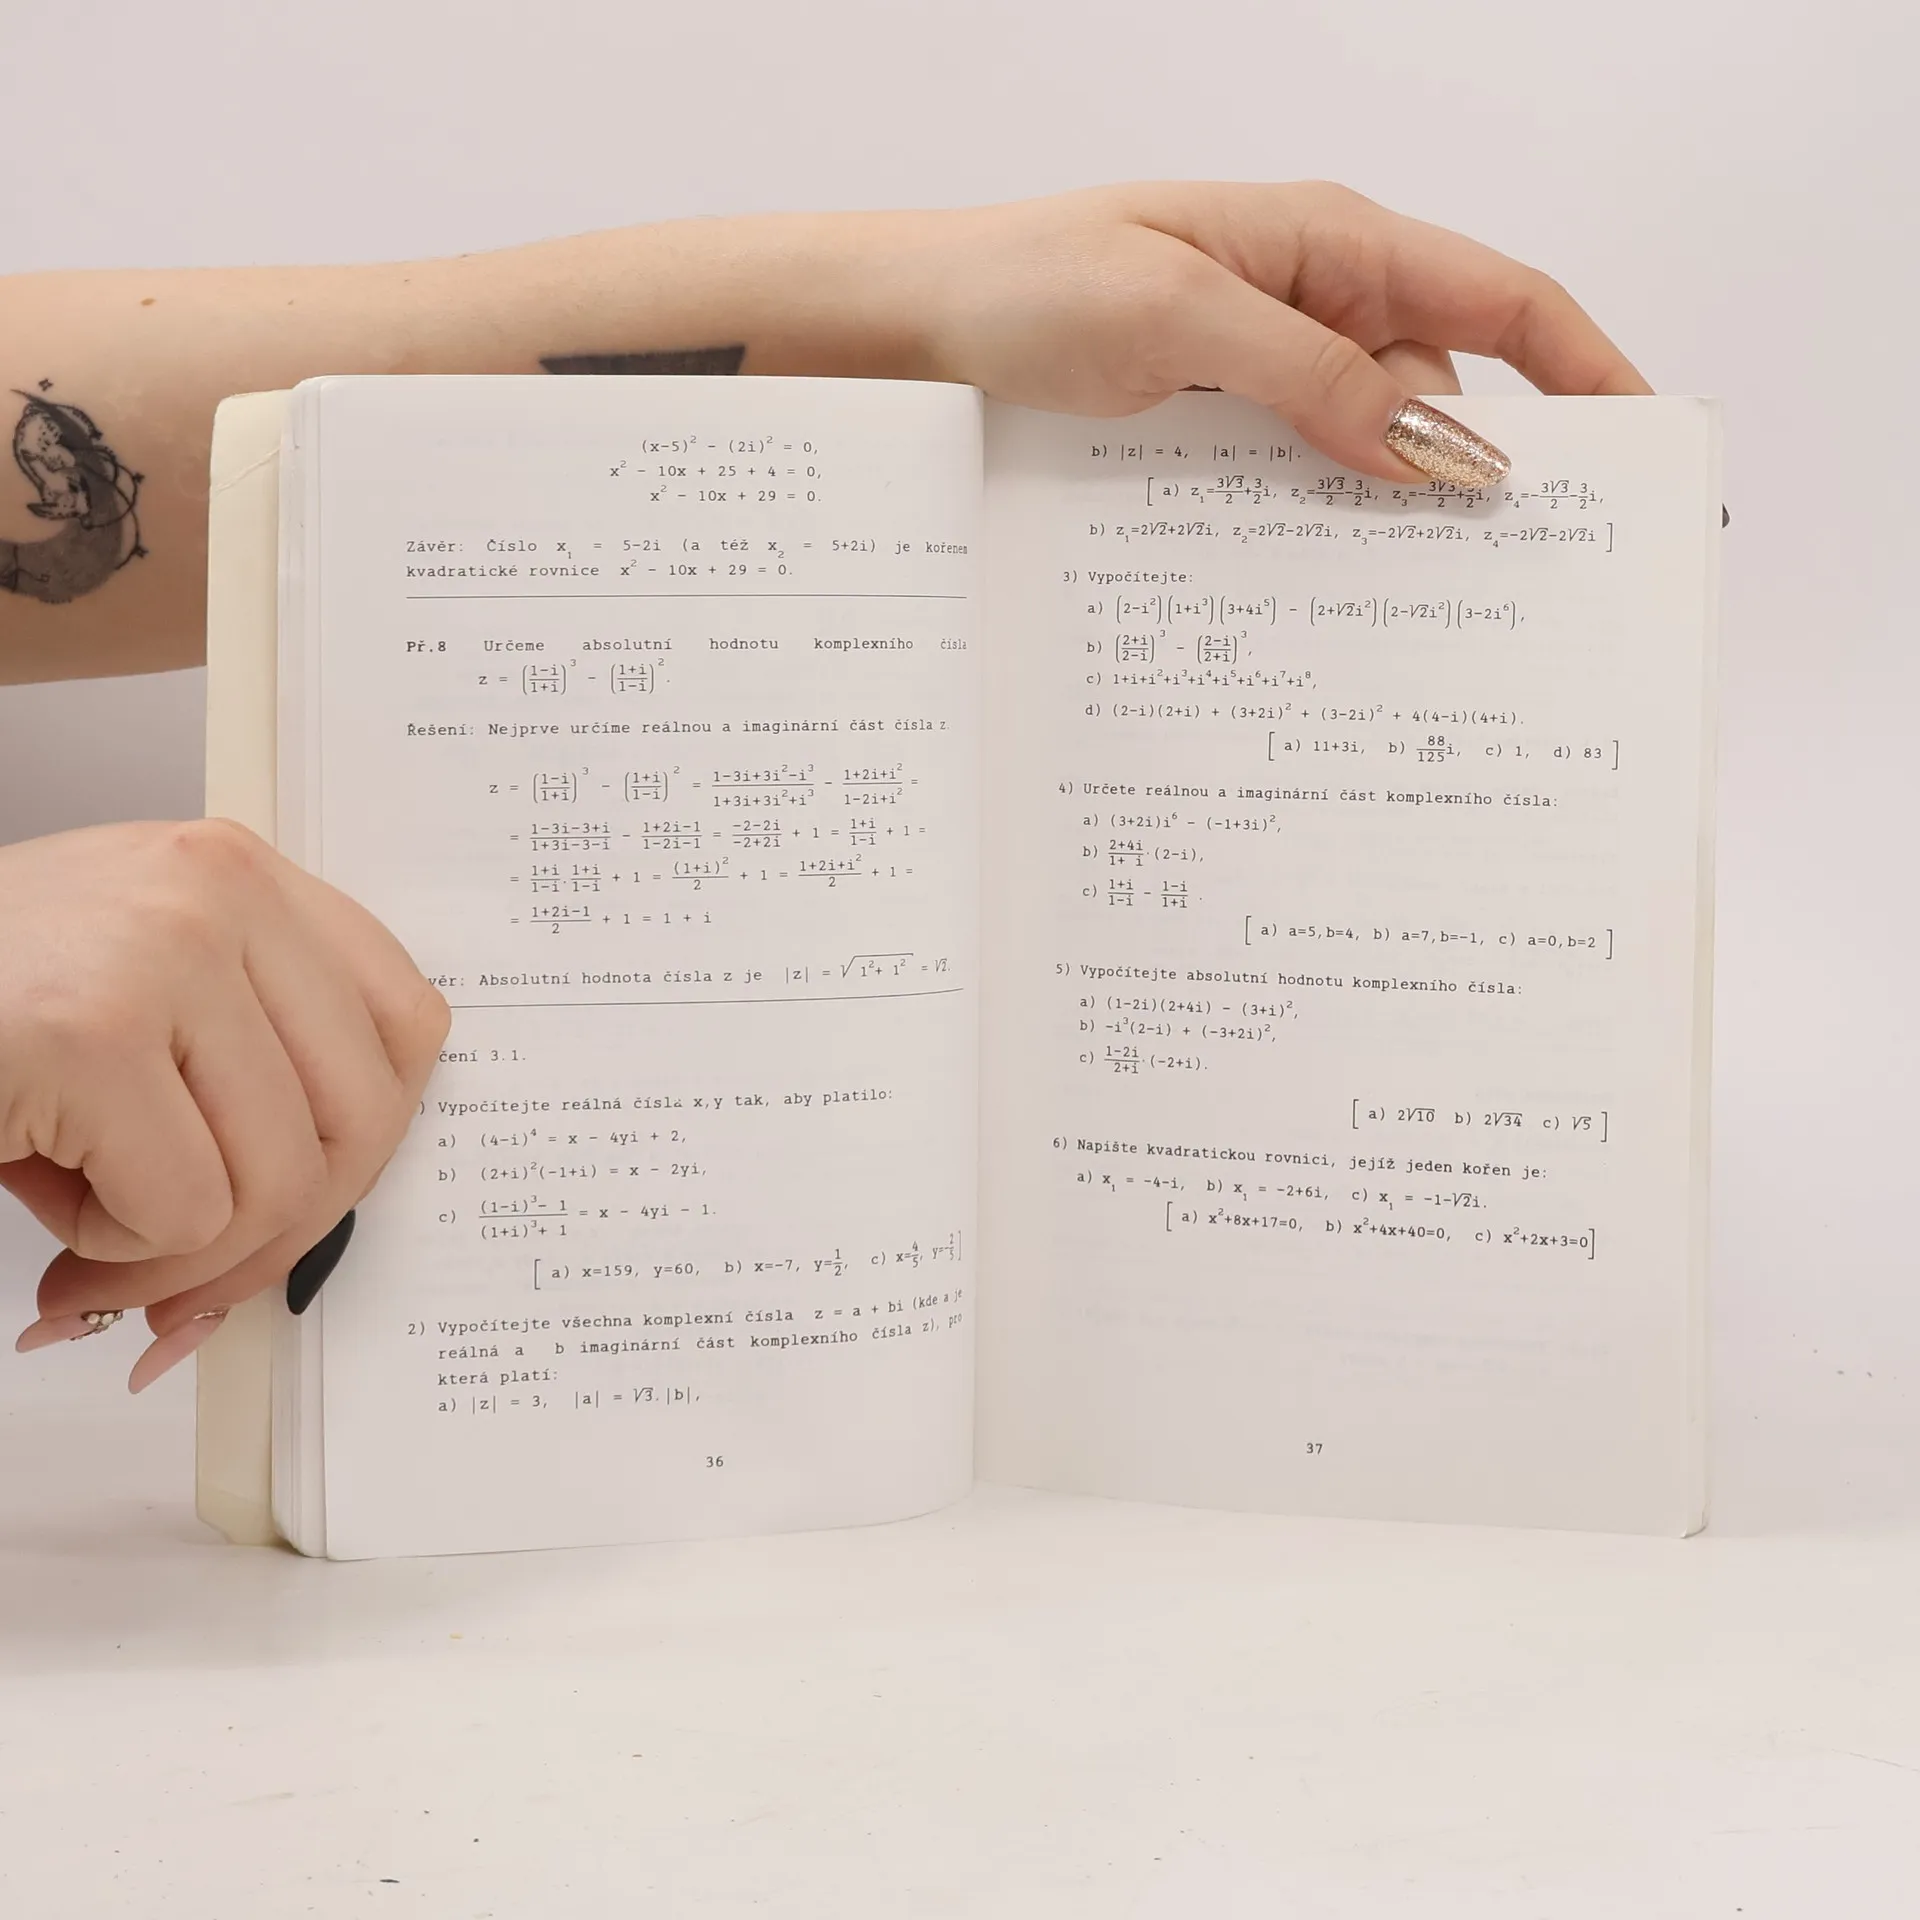 (x-5)² - (2i)² = 0,
x² - 10x + 25 + 4 = 0,
x² - 10x + 29 = 0.
Závěr: Číslo x₁ = 5-2i (a též x₂ = 5+2i) je kořenem
kvadratické rovnice x² - 10x + 29 = 0.
Př.8 Určeme absolutní hodnotu komplexního čísla
z = ((1-i)/(1+i))³ - ((1+i)/(1-i))².
Řešení: Nejprve určíme reálnou a imaginární část čísla z.
z = ((1-i)/(1+i))³ - ((1+i)/(1-i))² = (1-3i+3i²-i³)/(1+3i+3i²+i³) - (1+2i+i²)/(1-2i+i²) =
= (1-3i-3+i)/(1+3i-3-i) - (1+2i-1)/(1-2i-1) = (-2-2i)/(-2+2i) + 1 = (1+i)/(1-i) + 1 =
= (1+i)/(1-i) . (1+i)/(1-i) + 1 = (1+i)²/2 + 1 = (1+2i+i²)/2 + 1 =
= (1+2i-1)/2 + 1 = 1 + i
věr: Absolutní hodnota čísla z je |z| = √(1²+ 1²) = √2.
čení 3.1.
) Vypočítejte reálná čísla x,y tak, aby platilo:
a) (4-i)⁴ = x - 4yi + 2,
b) (2+i)²(-1+i) = x - 2yi,
c) ((1-i)³- 1)/((1+i)³+ 1) = x - 4yi - 1.
[ a) x=159, y=60, b) x=-7, y=1/2, c) x=4/5, y=-2/5]
2) Vypočítejte všechna komplexní čísla z = a + bi (kde a je
reálná a b imaginární část komplexního čísla z), pro
která platí:
a) |z| = 3, |a| = √3.|b|,
36
b) |z| = 4, |a| = |b|.
[ a) z₁=3√3/2+3/2i, z₂=3√3/2-3/2i, z₃=-3√3/2+3/2i, z₄=-3√3/2-3/2i,
b) z₁=2√2+2√2i, z₂=2√2-2√2i, z₃=-2√2+2√2i, z₄=-2√2-2√2i ]
3) Vypočítejte:
a) (2-i²)(1+i³)(3+4i⁵) - (2+√2i²)(2-√2i²)(3-2i⁶),
b) ((2+i)/(2-i))³ - ((2-i)/(2+i))³,
c) 1+i+i²+i³+i⁴+i⁵+i⁶+i⁷+i⁸,
d) (2-i)(2+i) + (3+2i)² + (3-2i)² + 4(4-i)(4+i).
[ a) 11+3i, b) 88/125i, c) 1, d) 83 ]
4) Určete reálnou a imaginární část komplexního čísla:
a) (3+2i)i⁶ - (-1+3i)²,
b) (2+4i)/(1+ i).(2-i),
c) (1+i)/(1-i) - (1-i)/(1+i) .
[ a) a=5,b=4, b) a=7,b=-1, c) a=0,b=2 ]
5) Vypočítejte absolutní hodnotu komplexního čísla:
a) (1-2i)(2+4i) - (3+i)²,
b) -i³(2-i) + (-3+2i)²,
c) (1-2i)/(2+i).(-2+i).
[ a) 2√10 b) 2√34 c) √5 ]
6) Napište kvadratickou rovnici, jejíž jeden kořen je:
a) x₁ = -4-i, b) x₁ = -2+6i, c) x₁ = -1-√2i.
[ a) x²+8x+17=0, b) x²+4x+40=0, c) x²+2x+3=0]
37